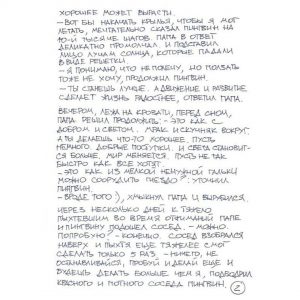 ХОРОШЕЕ МОЖЕТ ВЫРАСТИ.
- ВОТ БЫ НАКАЧАТЬ КРЫЛЬЯ, ЧТОБЫ Я МОГ
ЛЕТАТЬ, МЕЧТАТЕЛЬНО СКАЗАЛ ПИНГВИН НА
10-Й ТЫСЯЧЕ ШАГОВ. ПАПА В ОТВЕТ
ДЕЛИКАТНО ПРОМОЛЧАЛ И ПОДСТАВИЛ
ЛИЦО ЛУЧАМ СОЛНЦА, КОТОРЫЕ ПАДАЛИ
В ВИДЕ РЕШЕТКИ.
- Я ПОНИМАЮ, ЧТО НЕ ПОМОЖУ, НО ПОЛЗАТЬ
ТОЖЕ НЕ ХОЧУ, ПРОДОЛЖИЛ ПИНГВИН.
- ТЫ СТАНЕШЬ ЛУЧШЕ. А ДВИЖЕНИЕ И РАЗВИТИЕ
СДЕЛАЕТ ЖИЗНЬ РАДОСТНЕЕ, ОТВЕТИЛ ПАПА.
ВЕЧЕРОМ, ЛЕЖА НА КРОВАТИ, ПЕРЕД СНОМ,
ПАПА РЕШИЛ ПРОДОЛЖИТЬ: - ЭТО КАК С
ДОБРОМ И СВЕТОМ. МРАК И СКУЧНЯК ВОКРУГ,
А ТЫ ДЕЛАЕШЬ ЧТО-ТО ХОРОШЕЕ. ПУСТЬ
НЕМНОГО. ДОБРЫЕ ПОСТУПКИ. И СВЕТА СТАНОВИТ-
СЯ БОЛЬШЕ, МИР МЕНЯЕТСЯ. ПУСТЬ НЕ ТАК
БЫСТРО КАК ВСЕ ХОТЯТ.
- ЭТО КАК ИЗ МЕЛКОЙ НЕНУЖНОЙ ГАЛЬКИ
МОЖНО СООРУДИТЬ ГНЕЗДО? УТОЧНИЛ
ПИНГВИН.
- ВРОДЕ ТОГО), ХМЫКНУЛ ПАПА И ВЫРУБИЛСЯ.
ЧЕРЕЗ НЕСКОЛЬКО ДНЕЙ К ТЯЖЕЛО
ПЫХТЕВШИМ ВО ВРЕМЯ ОТЖИМАНИЙ ПАПЕ
И ПИНГВИНУ ПОДОШЕЛ СОСЕД. - МОЖНО
ПОПРОБУЮ? - КОНЕЧНО. СОСЕД ВЗОБРАЛСЯ
НАВЕРХ И ПЫХТЯ ЕЩЕ ТЯЖЕЛЕЕ СМОГ
СДЕЛАТЬ ТОЛЬКО 5 РАЗ. - НИЧЕГО, НЕ
ОСТАНАВЛИВАЙСЯ, ПРОБУЙ И ДЕЛАЙ ЕЩЕ И
БУДЕШЬ ДЕЛАТЬ БОЛЬШЕ ЧЕМ Я, ПОДБОДРИЛ
КРАСНОГО И ПОТНОГО СОСЕДА ПИНГВИН.
2